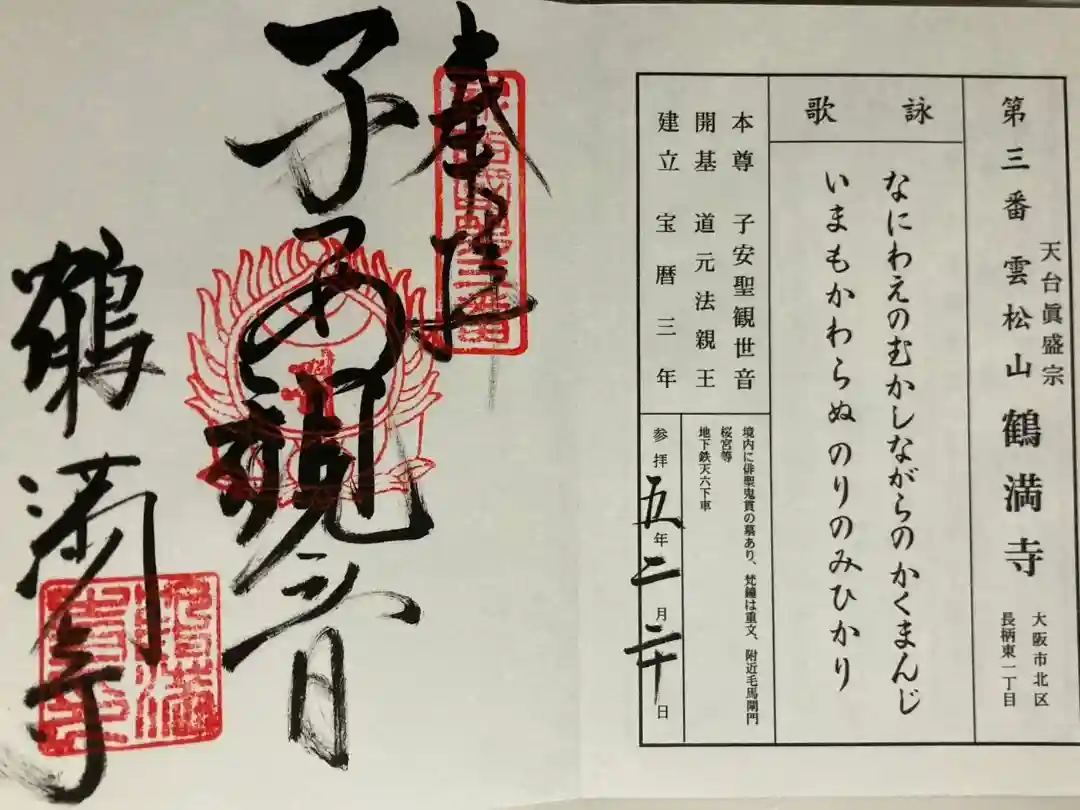 第三番 雲松山 鶴満寺
天台眞盛宗
大阪市北区
長柄東一丁目
詠歌
なにわえのむかしながらのかくまんじ
いまもかわらぬのりのみひかり
本尊 子安聖観世音
開基 道元法親王
建立 宝暦三年
境内に俳聖鬼貫の墓あり、梵鐘は重文、附近毛馬閘門
桜宮等
地下鉄天六下車
参拝 五年 二月 二十日
奉拝
子安観音
鶴満寺